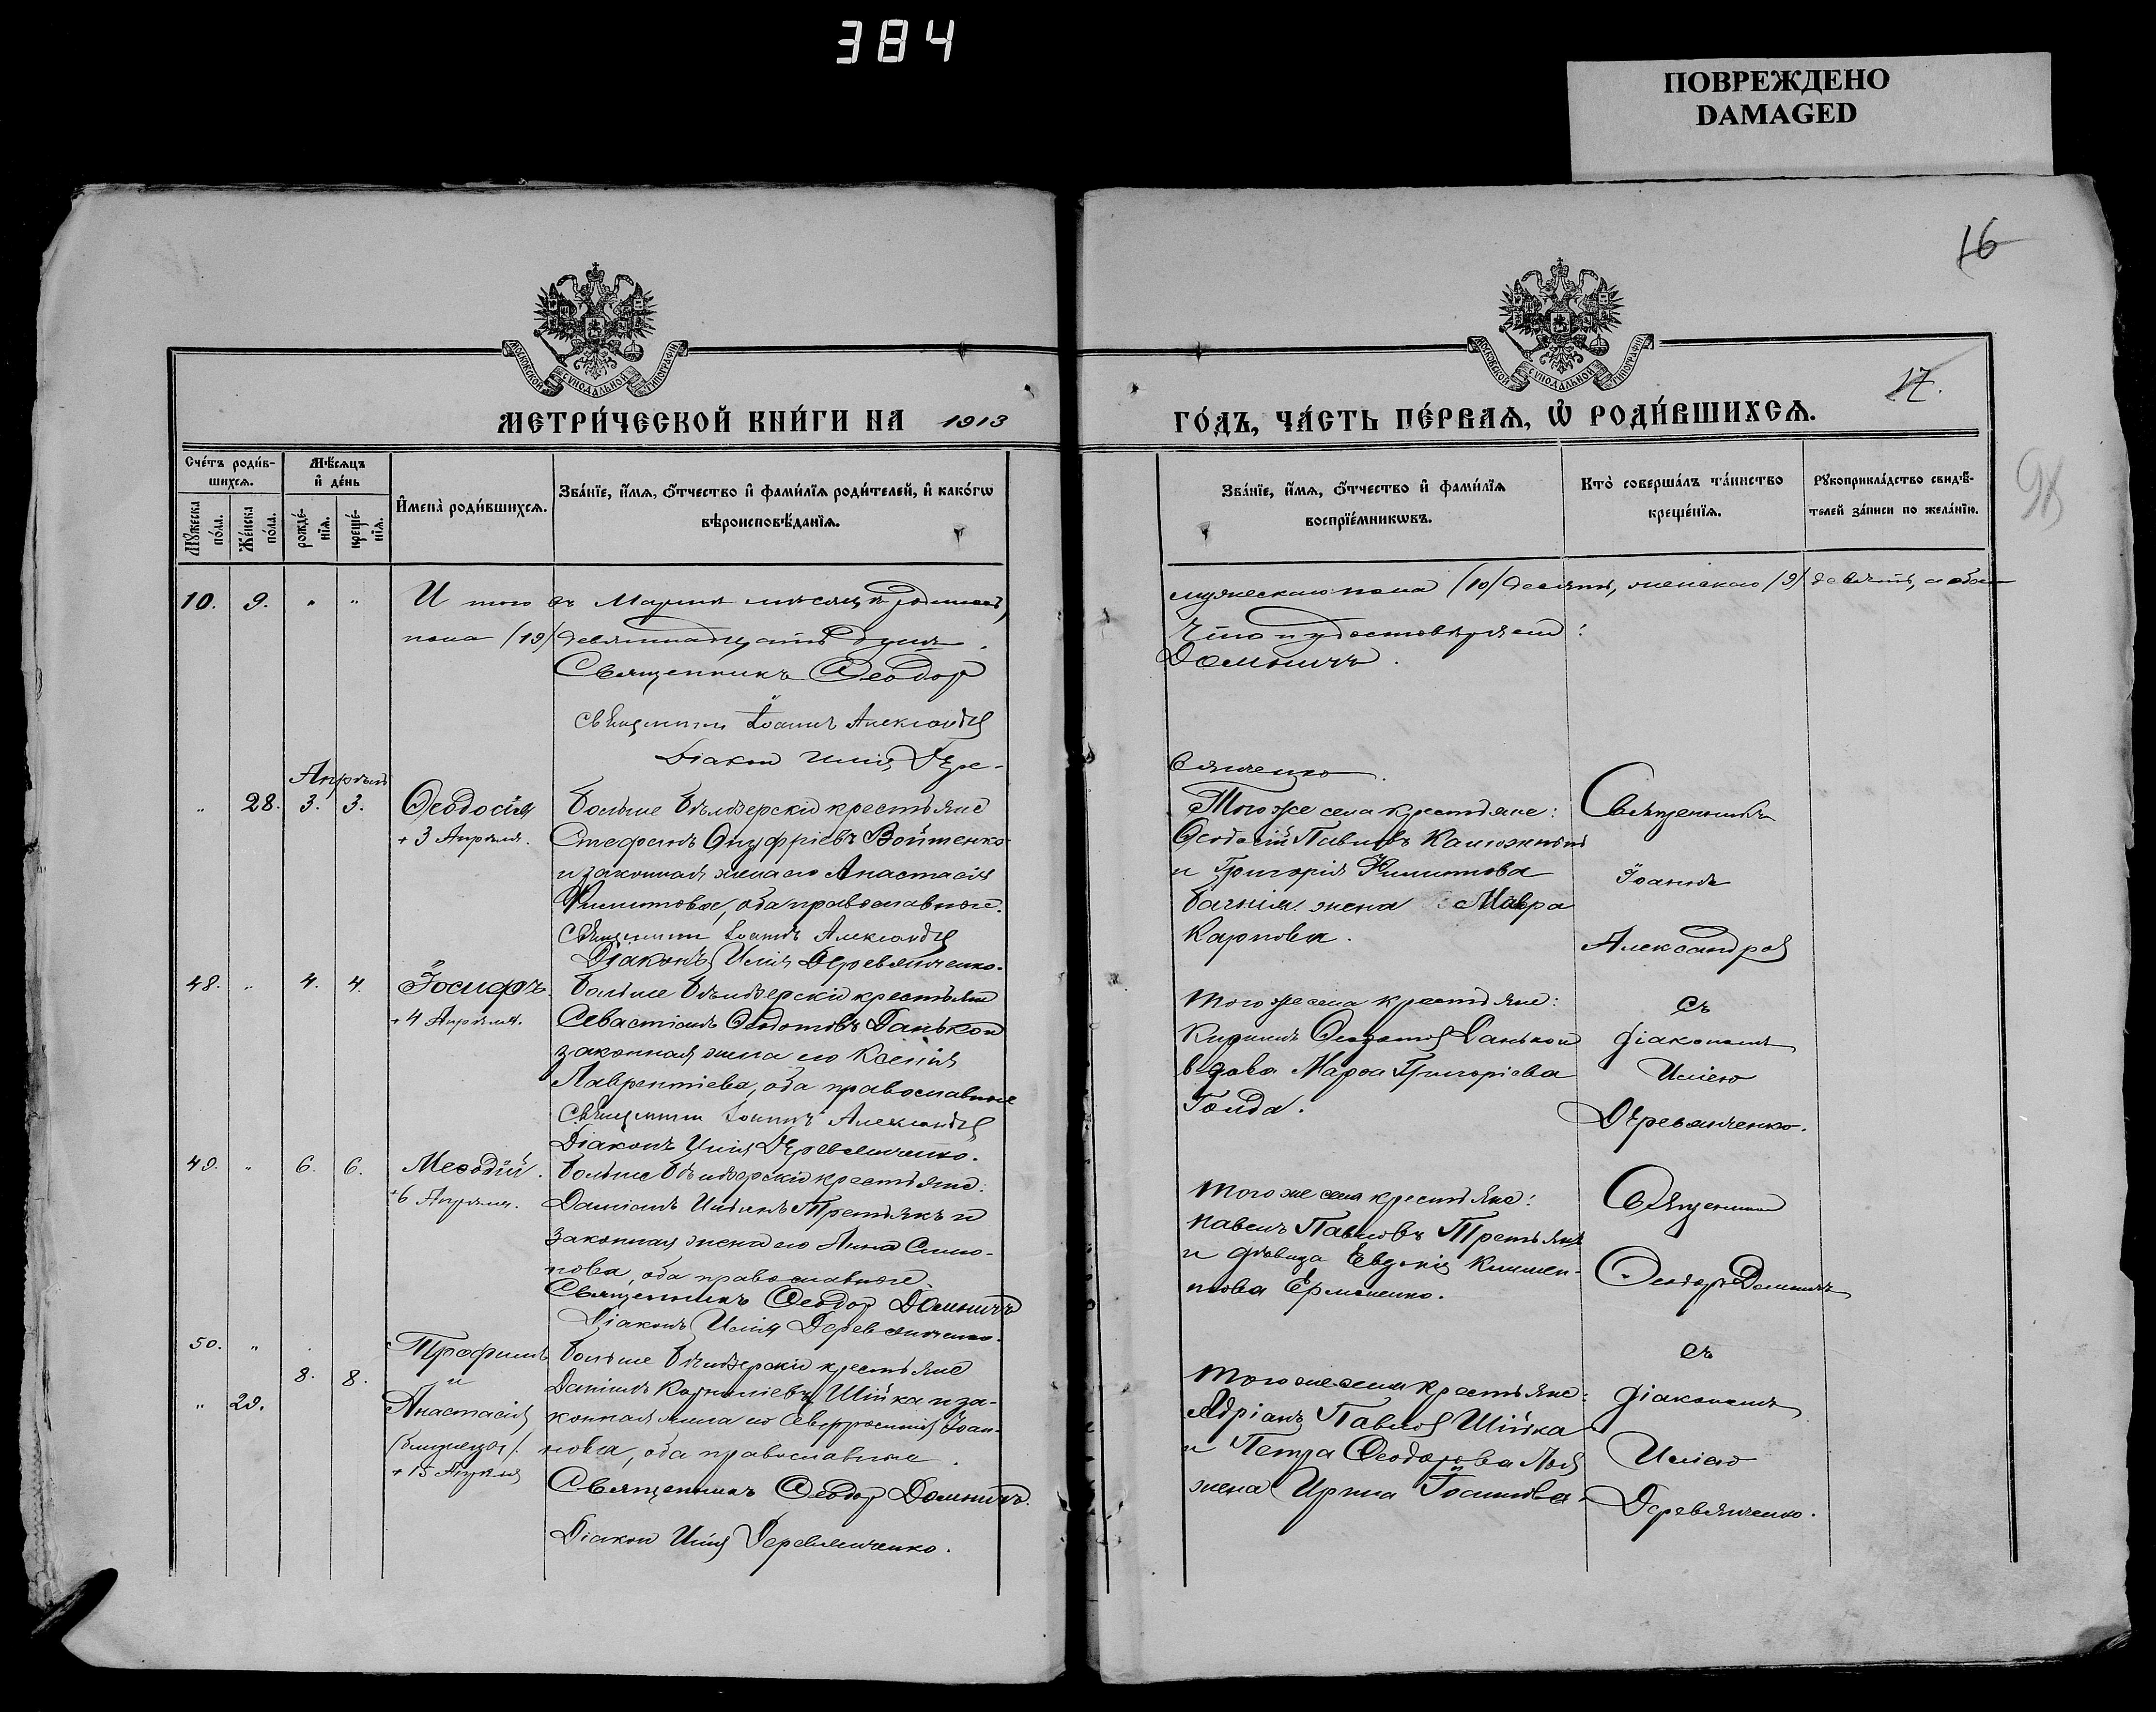 384
ПОВРЕЖДЕНО
DAMAGED
16
МОСКОВСКОЙ СѴНОДАЛЬНОЙ ТИПОГРАФІИ
МОСКОВСКОЙ СѴНОДАЛЬНОЙ ТИПОГРАФІИ
17.
98
МЕТРИ́ЧЕСКОЙ КНИ́ГИ НА 1913
ГО́ДЪ, ЧА́СТЬ ПЕ́РВАѦ, Ѡ҆ РОДИ́ВШИХСѦ.
Сче́тъ роди́в-
шихсѧ.
Мѣ́сѧцъ
и҆ де́нь
Мꙋ́жеска
по́ла.
Же́нска
по́ла.
рожде́-
нїѧ.
креще́-
нїѧ.
И҆мена̀ роди́вшихсѧ.
Зва́нїе, и҆́мѧ, ѻ҆́тчество и҆ фами́лїѧ роди́телей, и҆ како́гѡ
вѣроисповѣ́данїѧ.
Зва́нїе, и҆́мѧ, ѻ҆́тчество и҆ фами́лїѧ
воспрїе́мникѡвъ.
Кто̀ соверша́лъ та́инство
креще́нїѧ.
Рꙋкоприкла́дство свидѣ́-
телей за́писи по жела́нїю.
10. 9. " "
И того въ Мартѣ мѣсяцѣ родилось
пола (19) девятнадцать душъ.
Священникъ Ѳеодор
Священникъ Іоаннъ Александр
Діакон Илія Дере-
мужескаго пола (10) десять, женскаго (9) девять, а обоего
Что и удостовѣряем:
Домничъ.
вянченко.
Апрѣль
" 28. 3. 3. Ѳеодосія
+ 3 Апрѣля.
Больше Бѣлозерскіе крестьяне
Стефанъ Онуфріевъ Войтенко
и законная жена его Анастасія
Филиппова, оба православные.
Священникъ Іоаннъ Александр
Діаконъ Илія Деревянченко.
Того же села крестьяне:
Ѳеодосій Павловъ Калюжный
и Григорія Филиппова
жена Мавра
Карпова.
Священникъ
Іоаннъ
Александров
48. " 4. 4. Іосифъ.
+ 4 Апрѣля.
Больше Бѣлозерскіе крестьяне
Севастіанъ Ѳеодотовъ Данько и
законная жена его Ксенія
Лаврентіева, оба православные
Священникъ Іоаннъ Александр
Діаконъ Илія Деревянченко.
Того же села крестьяне:
Кириллъ Данько и
вдова Марѳа Григоріева
Гойда.
съ
діакономъ
Иліею
Деревянченко.
49. " 6. 6. Меѳодій.
+ 6 Апрѣля.
Больше Бѣлозерскіе крестьяне:
Даміанъ Третьякъ и
законная жена его Анна Симо-
нова, оба православные.
Священникъ Ѳеодор Домничъ
Діаконъ Илія Деревянченко.
Того же села крестьяне:
Павелъ Павловъ Третьякъ
и дѣвица Евдокія Климен-
това Ермоленко.
Священник
Ѳеодоръ Домничъ
50. " Трофимъ
и
8. 8.
" 29. Анастасія
(близнецы).
+ 15 Апрѣля
Больше Бѣлозерскіе крестьяне
Даніилъ Корниліевъ Шійка и за-
конная жена его Евфросинія Іоан-
нова, оба православные.
Священникъ Ѳеодор Домничъ.
Діакон Илія Деревянченко.
Того же села крестьяне:
Адріанъ Павлов Шійка
и Петра Ѳеодорова
жена Ирина Іосифова.
съ
діакономъ
Иліею
Деревянченко.